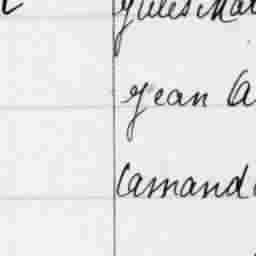 Jules Ma
Jean A
Camand